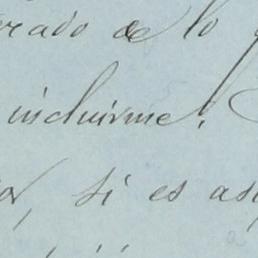 erado de lo
incluirme.
or, si es as